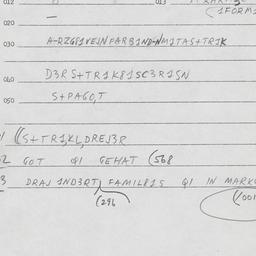 012
013
(1FORM1
020 —
030 A-RZGE1VEJNPARB1ND-NM1TAS+TR1K
040 D3RS+TR1K81SC3R1SN
050 S+PAGO,T
((S+TR1,KL,DREJ3R
2 GOT Q1 GEHAT (568
3 DRAJ 1ND3RT FAMIL81S Q1 IN MARK
(296
(001